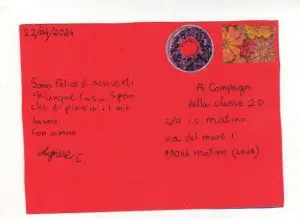 22/04/2024
Sono felice di scriverti
chiunque tu sia. Spero
che ti piaccia il mio
lavoro.
Con amore
Agnese C.
Ai Compagni
della classe 2D
c/o i.c matino
via del mare 1
73046 matino (Lecce)